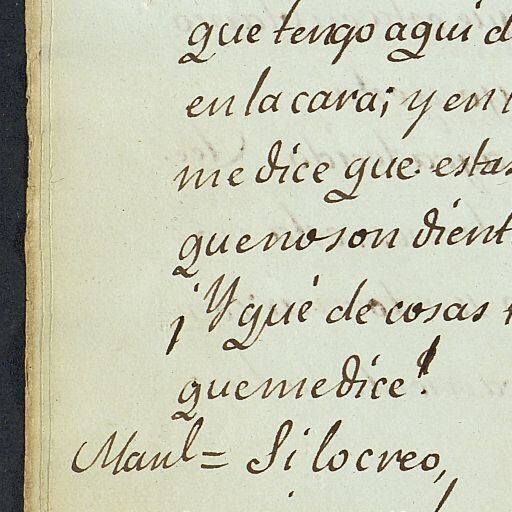 que tengo aqui d
en la cara; y en
me dice que estas
que no son dient
¡Y qué de cosas
que me dice!
Manl = Si lo creo,